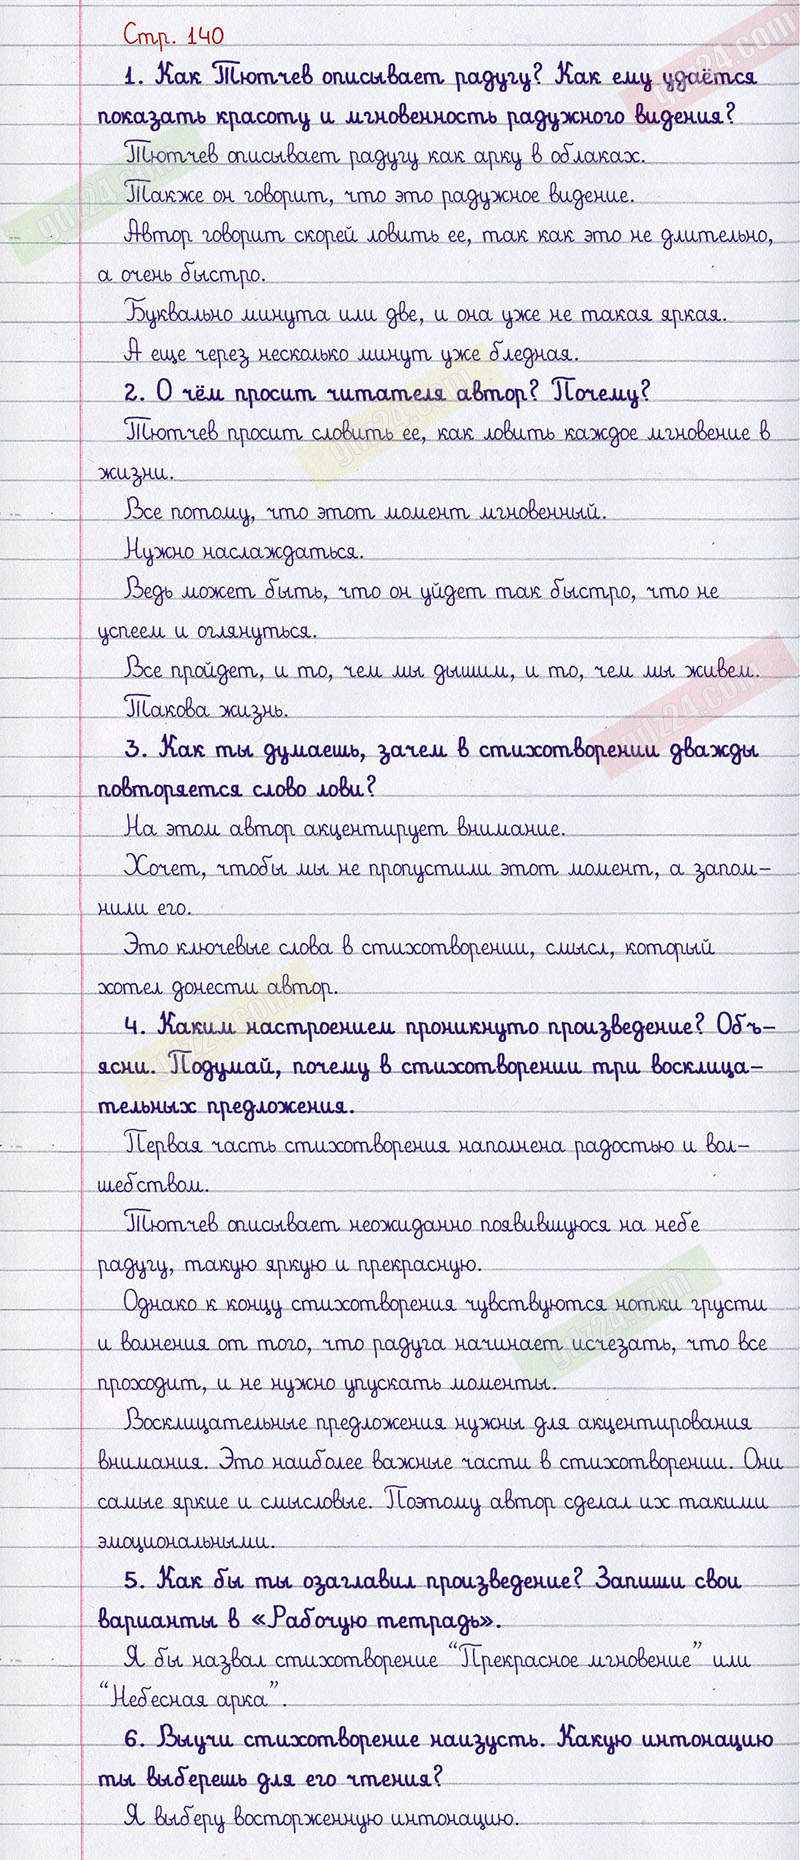 Стр. 140
1. Как Тютчев описывает радугу? Как ему удаётся
показать красоту и мгновенность радужного видения?
Тютчев описывает радугу как арку в облаках.
Также он говорит, что это радужное видение.
Автор говорит скорей ловить ее, так как это не длительно,
а очень быстро.
Буквально минута или две, и она уже не такая яркая.
А еще через несколько минут уже бледная.
2. О чём просит читателя автор? Почему?
Тютчев просит словить ее, как ловить каждое мгновение в
жизни.
Все потому, что этот момент мгновенный.
Нужно наслаждаться.
Ведь может быть, что он уйдет так быстро, что не
успеем и оглянуться.
Все пройдет, и то, чем мы дышим, и то, чем мы живем.
Такова жизнь.
3. Как ты думаешь, зачем в стихотворении дважды
повторяется слово лови?
На этом автор акцентирует внимание.
Хочет, чтобы мы не пропустили этот момент, а запом-
нили его.
Это ключевые слова в стихотворении, смысл, который
хотел донести автор.
4. Каким настроением проникнуто произведение? Объ-
ясни. Подумай, почему в стихотворении три восклица-
тельных предложения.
Первая часть стихотворения наполнена радостью и вол-
шебством.
Тютчев описывает неожиданно появившуюся на небе
радугу, такую яркую и прекрасную.
Однако к концу стихотворения чувствуются нотки грусти
и волнения от того, что радуга начинает исчезать, что все
проходит, и не нужно упускать моменты.
Восклицательные предложения нужны для акцентирования
внимания. Это наиболее важные части в стихотворении. Они
самые яркие и смысловые. Поэтому автор сделал их такими
эмоциональными.
5. Как бы ты озаглавил произведение? Запиши свои
варианты в «Рабочую тетрадь».
Я бы назвал стихотворение “Прекрасное мгновение” или
“Небесная арка”.
6. Выучи стихотворение наизусть. Какую интонацию
ты выберешь для его чтения?
Я выберу восторженную интонацию.
gdz24.com
gdz24.com
gdz24.com
gdz24.com
gdz24.com
gdz24.com